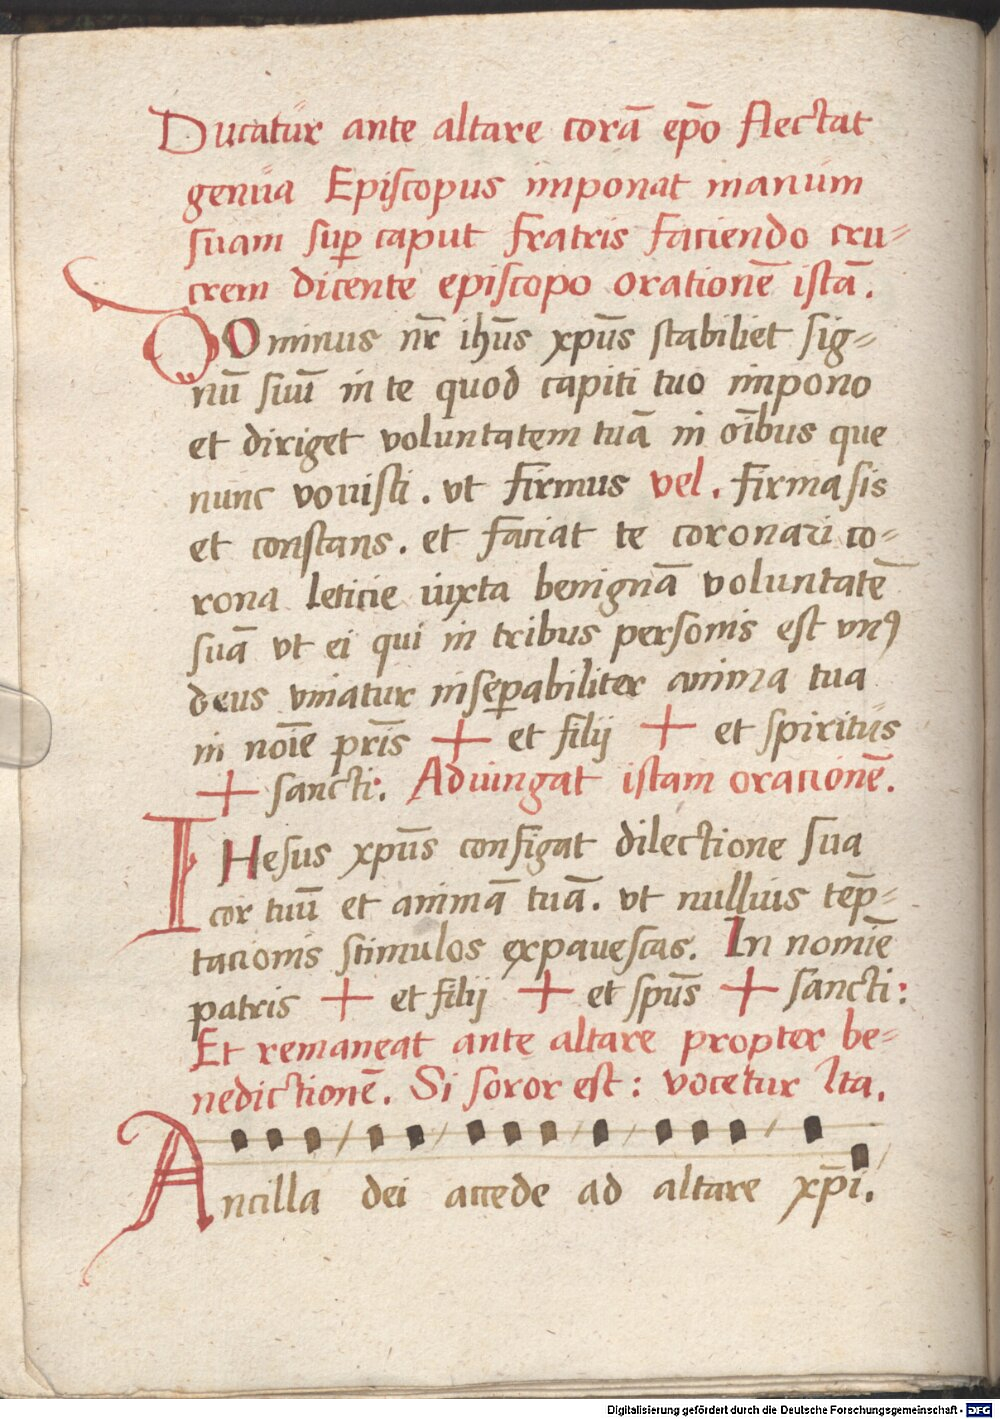 Ducatur ante altare corā ep̄o flectat
genua Episcopus imponat manum
suam suꝑ caput fratris faciendo cru-
crem dicente episcopo orationē istā.
DOminus nr̄ ihūs xpūs stabiliet sig-
nū suū in te quod capiti tuo impono
et diriget voluntatem tuā in oībus que
nunc vovisti. vt firmus vel. firma sis
et constans. et faciat te coronari co-
rona leticie iuxta benignā voluntatē
suā vt ei qui in tribus personis est vnꝰ
deus vniatur inseꝑabiliter anima tua
in noīe pr̄is + et filij + et spiritus
+ sancti: Adiungat istam oracionē.
IHesus xpūs configat dilectione sua
cor tuū et animā tuā. vt nullius tēp-
tacionis stimulos expavescas. In nomīe
patris + et filij + et spūs + sancti:
Et remaneat ante altare propter be-
nedictionē. Si soror est: vocetur Ita.
Ancilla dei accede ad altare xp̄i.
Digitalisierung gefördert durch die Deutsche Forschungsgemeinschaft - DFG